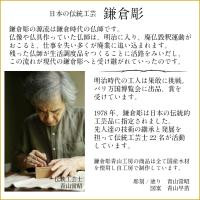 日本の伝統工芸 鎌倉彫
鎌倉彫の源流は鎌倉時代の仏師です。
仏像や仏具作っていた仏師は、明治に入り、廃仏毀釈運動が
おこると、仕事を失い多くが廃業に追い込まれます。
残った仏師が生活調度品をつくることに活路をみいだし、
この流れが現代の鎌倉彫へと受け継がれていったのです。
明治時代の工人は果敢に挑戦、
パリ万国博覧会に出品、賞を
受けています。
1978年、鎌倉彫は日本の伝統的
工芸品に指定されました。
先人達の技術の継承と発展を
担って伝統工芸士22名が活動
しています。
鎌倉彫青山工房の商品は全て国産木材
を使用し自工房で制作しています。
彫刻・塗り 青山常昭
図案 青山早苗
伝統工芸士
青山常昭